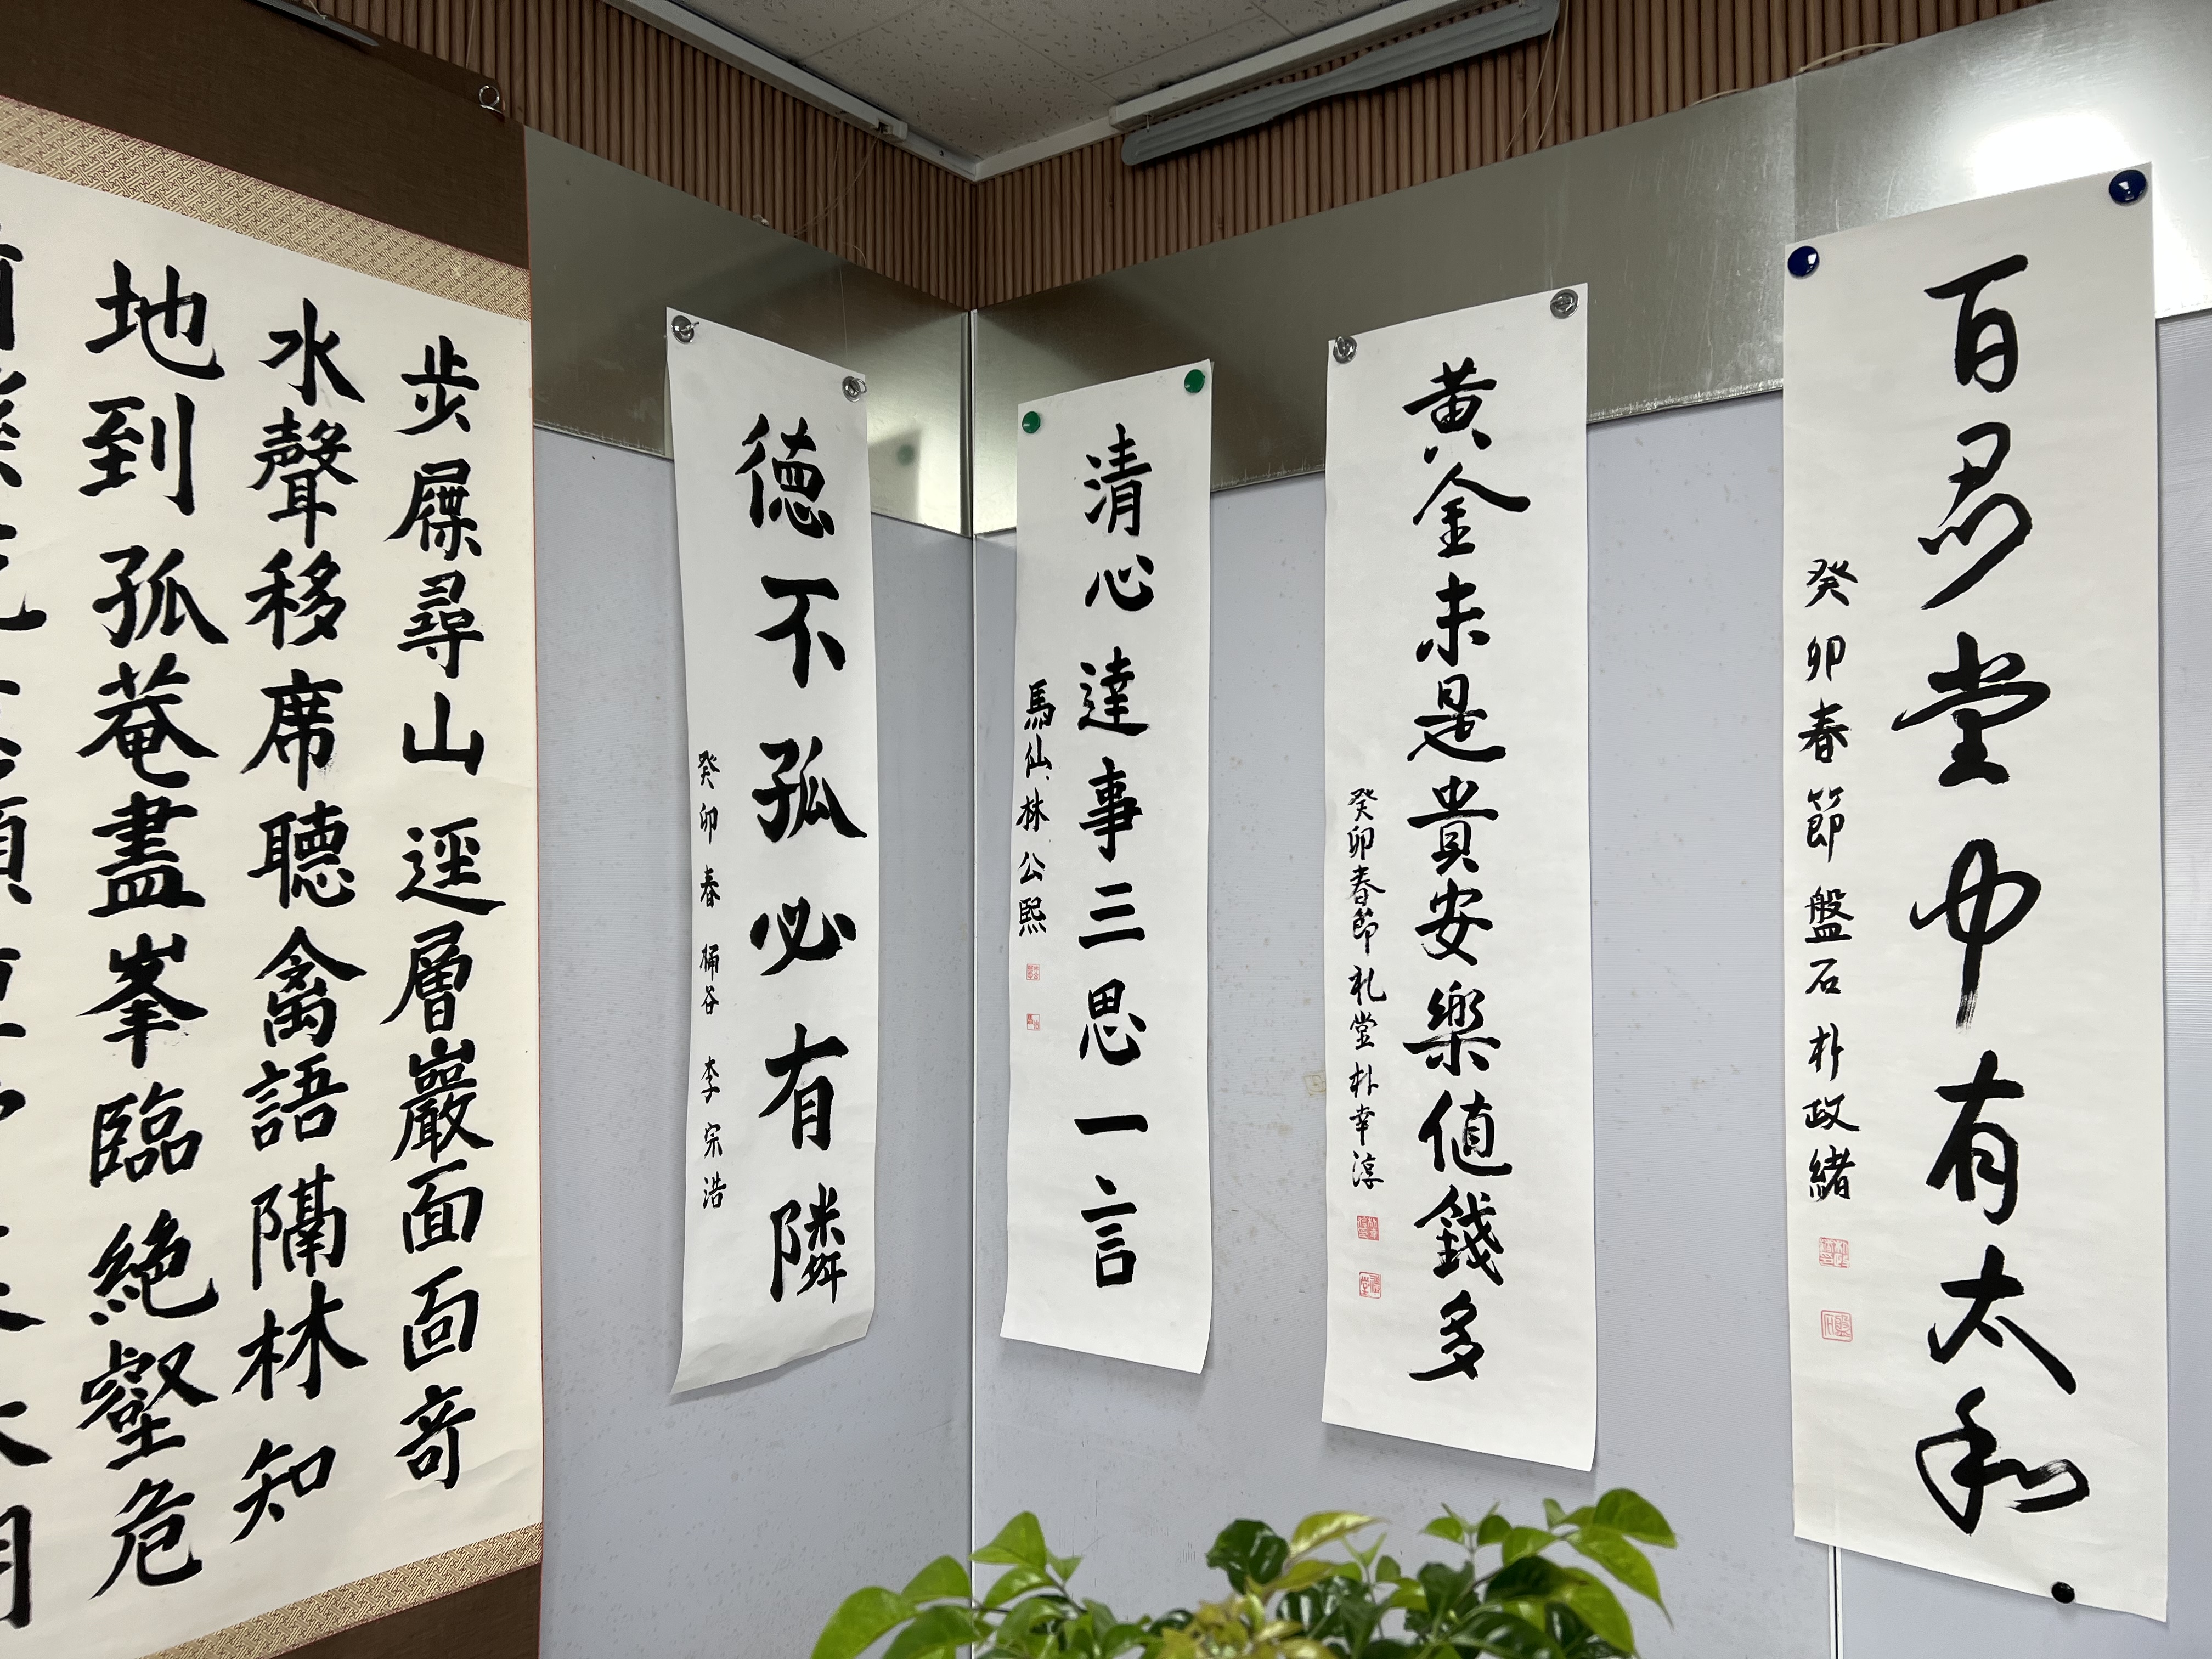 百忍堂中有太和
癸卯春節 盤石 朴政緖
黄金未是貴安樂値錢多
癸卯春節 礼堂 朴幸淳
清心達事三思一言
馬仙 林公熙
德不孤必有隣
癸卯春 桶谷 李宗浩
步屧尋山逕層巖面面奇
水聲移席聽禽語隔林知
地到孤菴盡峯臨絶壑危